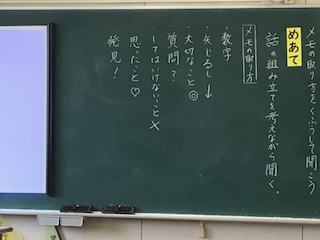 メモの取り方をくふうして聞こう
めあて
話の組み立てを考えながら聞く。
メモの取り方
・数字
・矢じるし ↓
・大切なこと ◎
・質問?
・してはいけないこと ×
思ったこと ♡
発見!